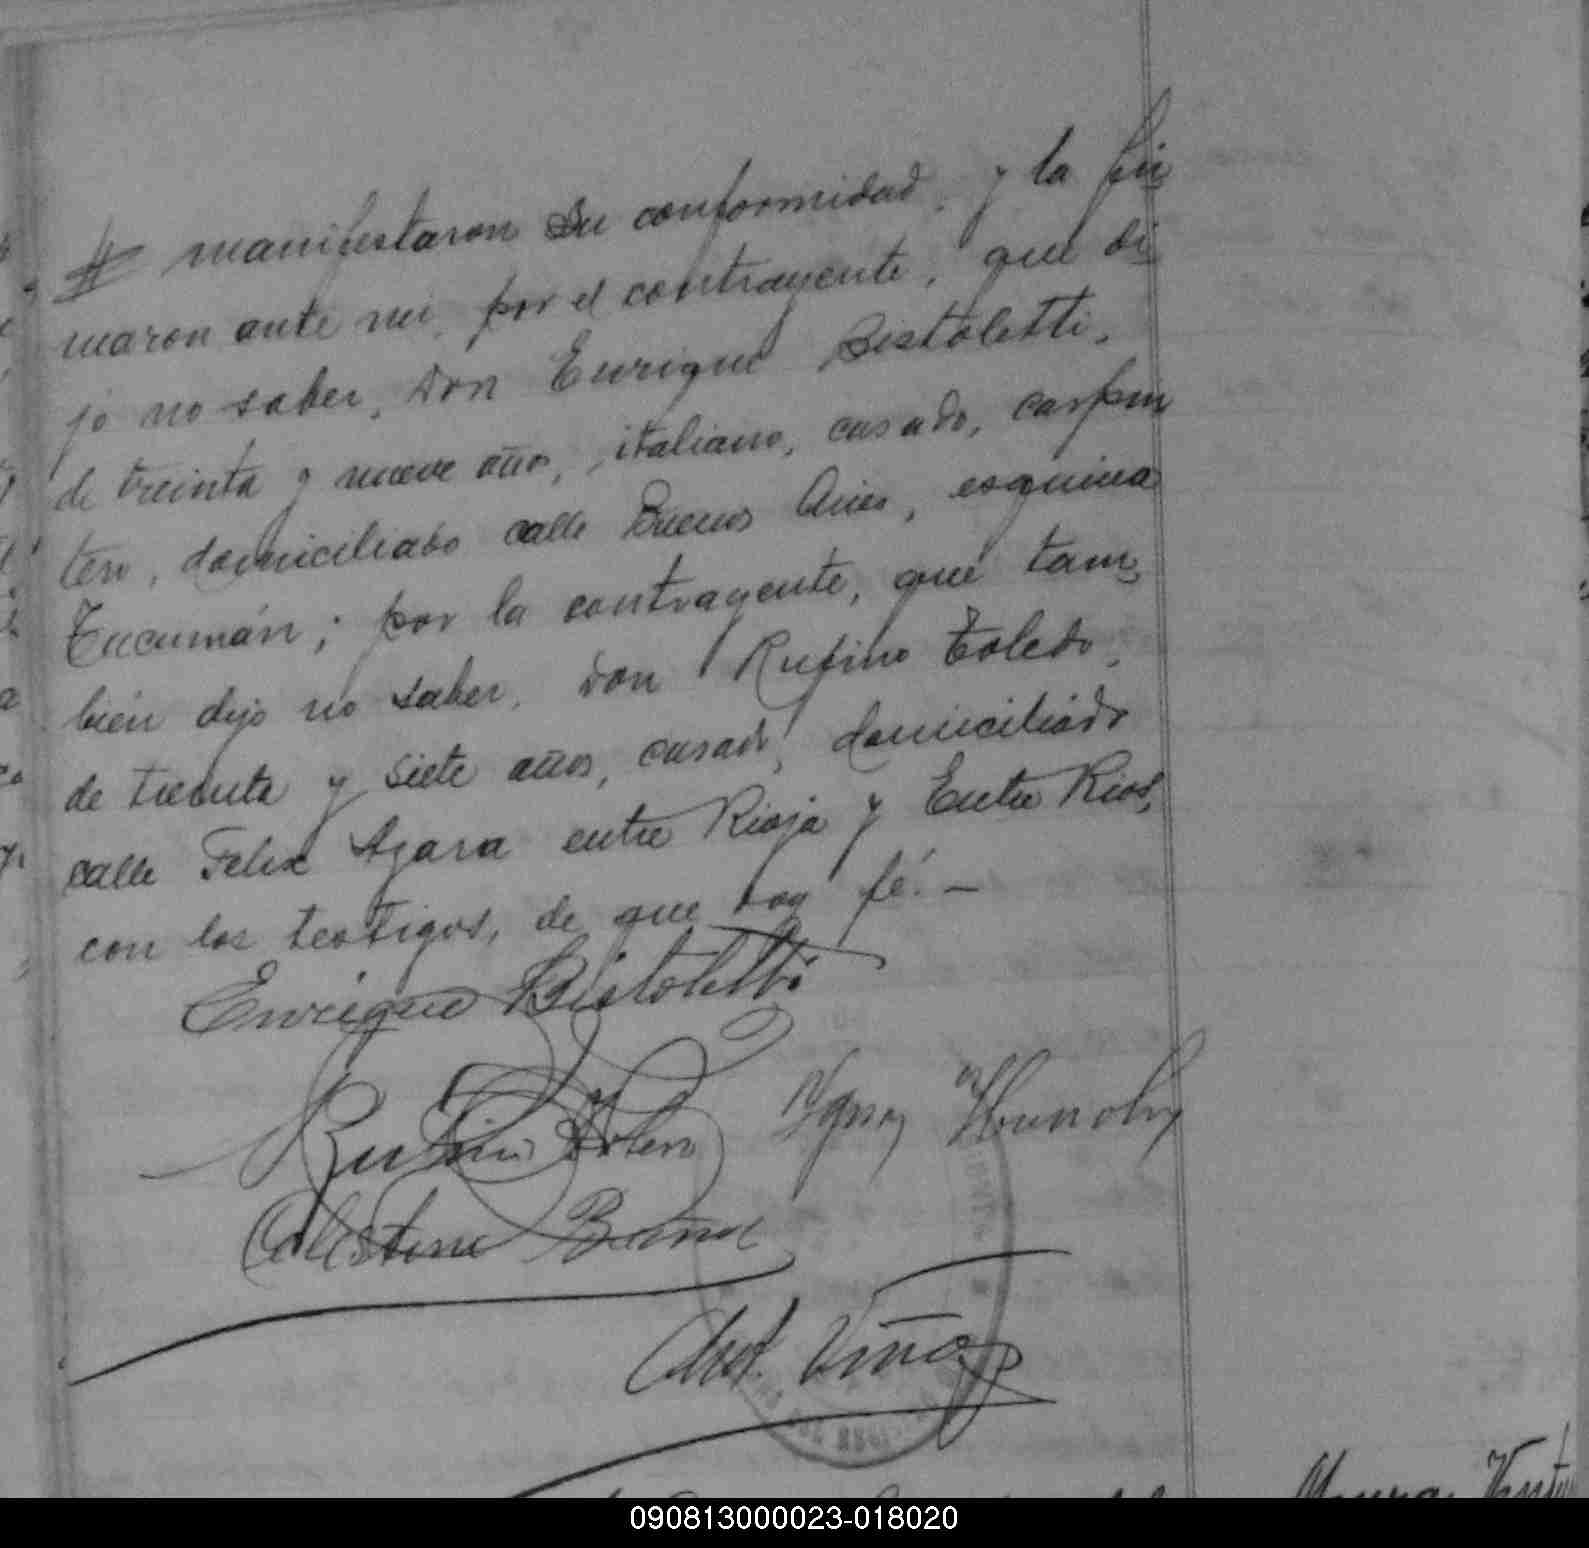 # manifestaron su conformidad, y la fir
maron ante mi, por el contrayente, que di
jo no saber, Don Enrique Bistoletti,
de treinta y nueve años, italiano, casado, carpin
tero, domiciliado calle Buenos Aires, esquina
Tucumán; por la contrayente, que tam
bién dijo no saber, Don Rufino Toledo,
de treinta y siete años, casado, domiciliado
calle Felix Azara entre Rioja y Entre Rios,
con los testigos, de que doy fé. —
Enrique Bistoletti
Rufino
Celestino
Viña
090813000023-018020